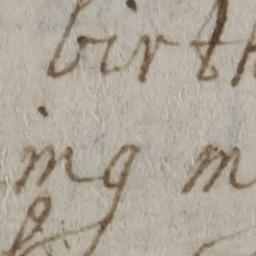 birth
ing m